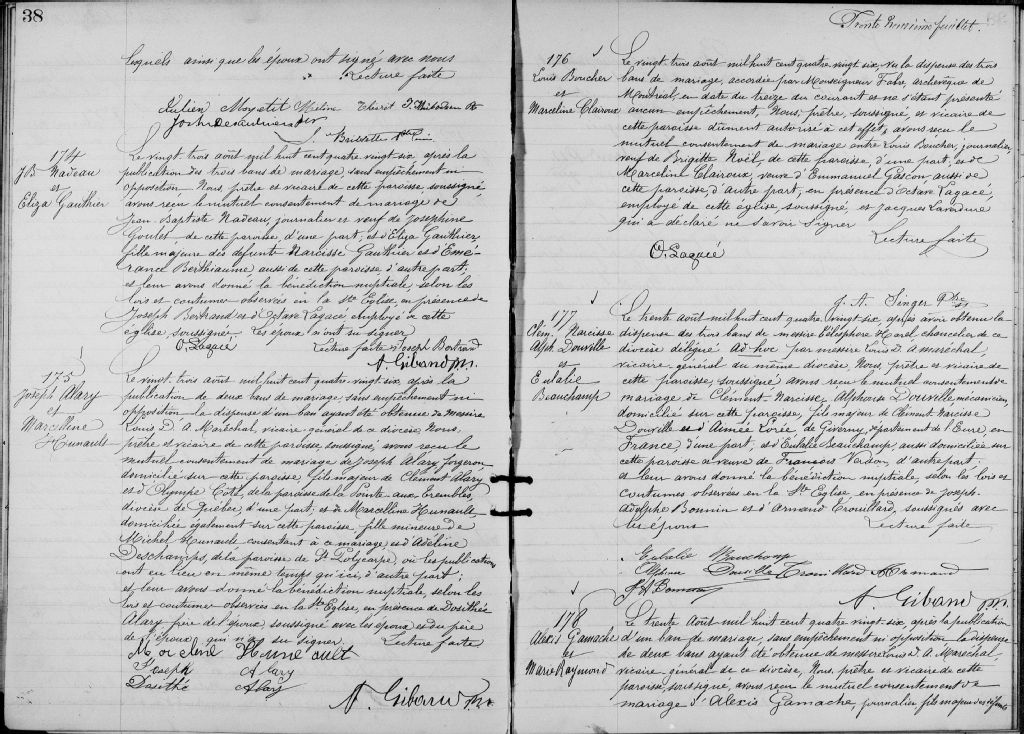 38
lesquels ainsi que les époux ont signé avec nous
Lecture faite
174
J B Nadeau
et
Eliza Gauthier
Le vingt trois août mil huit cent quatre vingt six après la
publication des trois bans de mariage, sans empêchement ni
opposition Nous, prêtre et vicaire de cette paroisse soussigné
avons reçu le mutuel consentement de mariage de
Jean Baptiste Nadeau journalier et veuf de Josephine
Goulet de cette paroisse, d'une part; et d'Eliza Gauthier
fille majeure des defunts Narcisse Gauthier et d'Emé-
rance Berthiaume aussi de cette paroisse d'autre part;
et leur avons donné la bénédiction nuptiale selon les
lois et coutumes observées en la Ste Eglise, en présence de
Joseph Bertrand et d'Octave Lagacé employé de cette
église, soussignés Les époux n'ont su signer
O, Lagacé Lecture faite Joseph Bertrand
A. Giband ptr.
175
Joseph Alary
et
Marcelline
Hunault
Le vingt trois août mil huit cent quatre vingt six après la
publication de deux bans de mariage sans empêchement ni
opposition la dispense d'un ban ayant été obtenue de Messire
Louis D. A. Maréchal, vicaire général de ce diocèse, Nous,
prêtre et vicaire de cette paroisse, soussigné, avons reçu le
mutuel consentement de mariage de Joseph Alary forgeron
domicilié sur cette paroisse, fils majeur de Clément Alary
et d'Olympe Côté, de la paroisse de la Pointe aux trembles,
diocèse de Québec, d'une part, et de Marcelline Hunault
domiciliée également sur cette paroisse, fille mineure de
Michel Hunault consentant à ce mariage, et d'Adéline
Deschamps, de la paroisse de St Polycarpe, où les publications
ont eu lieu en même temps qu'ici, d'autre part;
et leur avons donné la bénédiction nuptiale, selon les
lois et coutumes observées en la Ste Eglise, en présence de Dosithée
Alary frère de l'époux, soussigné avec les époux et du père
de l'époux qui n'a su signer. Lecture faite
Joseph Alary
Dosithé Alary
A. Giband Ptr.
Trente huitième feuillet.
176
Louis Boucher
et
Marceline Clairoux
Le vingt trois août mil huit cent quatre vingt six, vu la dispense des trois
bans de mariage, accordée par Monseigneur Fabre, archevêque de
Montréal, en date du treize du courant et ne s'étant présenté
aucun empêchement, Nous, prêtre, soussigné, et vicaire de
cette paroisse dûment autorisé à cet effet, avons reçu le
mutuel consentement de mariage entre Louis Boucher, journalier,
veuf de Brigitte Noël, de cette paroisse, d'une part, et de
Marceline Clairoux, veuve d'Emmanuel Gascon aussi de
cette paroisse, d'autre part, en présence d'Octave Lagacé,
employé de cette église, soussigné, et Jacques Laverdure
qui a déclaré ne savoir signer
Lecture faite
O, Lagacé
J. A. Singer Ptre
177
Clém. Narcisse
Alph. Douville
et
Eulalie
Beauchamp
Le trente août mil huit cent quatre vingt six, après avoir obtenu la
dispense des trois bans de messire Télesphore Harel, chancelier de ce
diocèse délégué Ad-hoc par messire Louis D. A. Maréchal,
vicaire général du même diocèse, Nous, prêtre et vicaire de
cette paroisse, soussigné avons reçu le mutuel consentement de
mariage de Clément-Narcisse Alphonse Douville mécanicien,
domicilié sur cette paroisse, fils majeur de Clément Narcisse
Douville et d'Aimée Lorée de Giverny, département de l'Eure, en
France, d'une part, et d'Eulalie Beauchamp, aussi domiciliée sur
cette paroisse et veuve de François Verdon, d'autre part;
et leur avons donné la bénédiction nuptiale, selon les lois et
coutumes observées en la Ste Eglise en présence de Joseph-
Adolphe Bonnin et d'Armand Trouillard, soussignés avec
les époux Lecture faite
Eulalie Beauchamp
Douville Trouillard Armand
A. Giband ptr.
178
Alexis Gamache
et
Marie Raymond
Le trente Août mil huit cent quatre vingt six, après la publication
d'un ban de mariage, sans empêchement ni opposition la dispense
de deux bans ayant été obtenue de messire Louis D. A. Maréchal
vicaire général de ce diocèse, Nous, prêtre et vicaire de cette
paroisse, soussigné, avons reçu le mutuel consentement de
mariage d'Alexis Gamache, journalier fils majeur des défunts